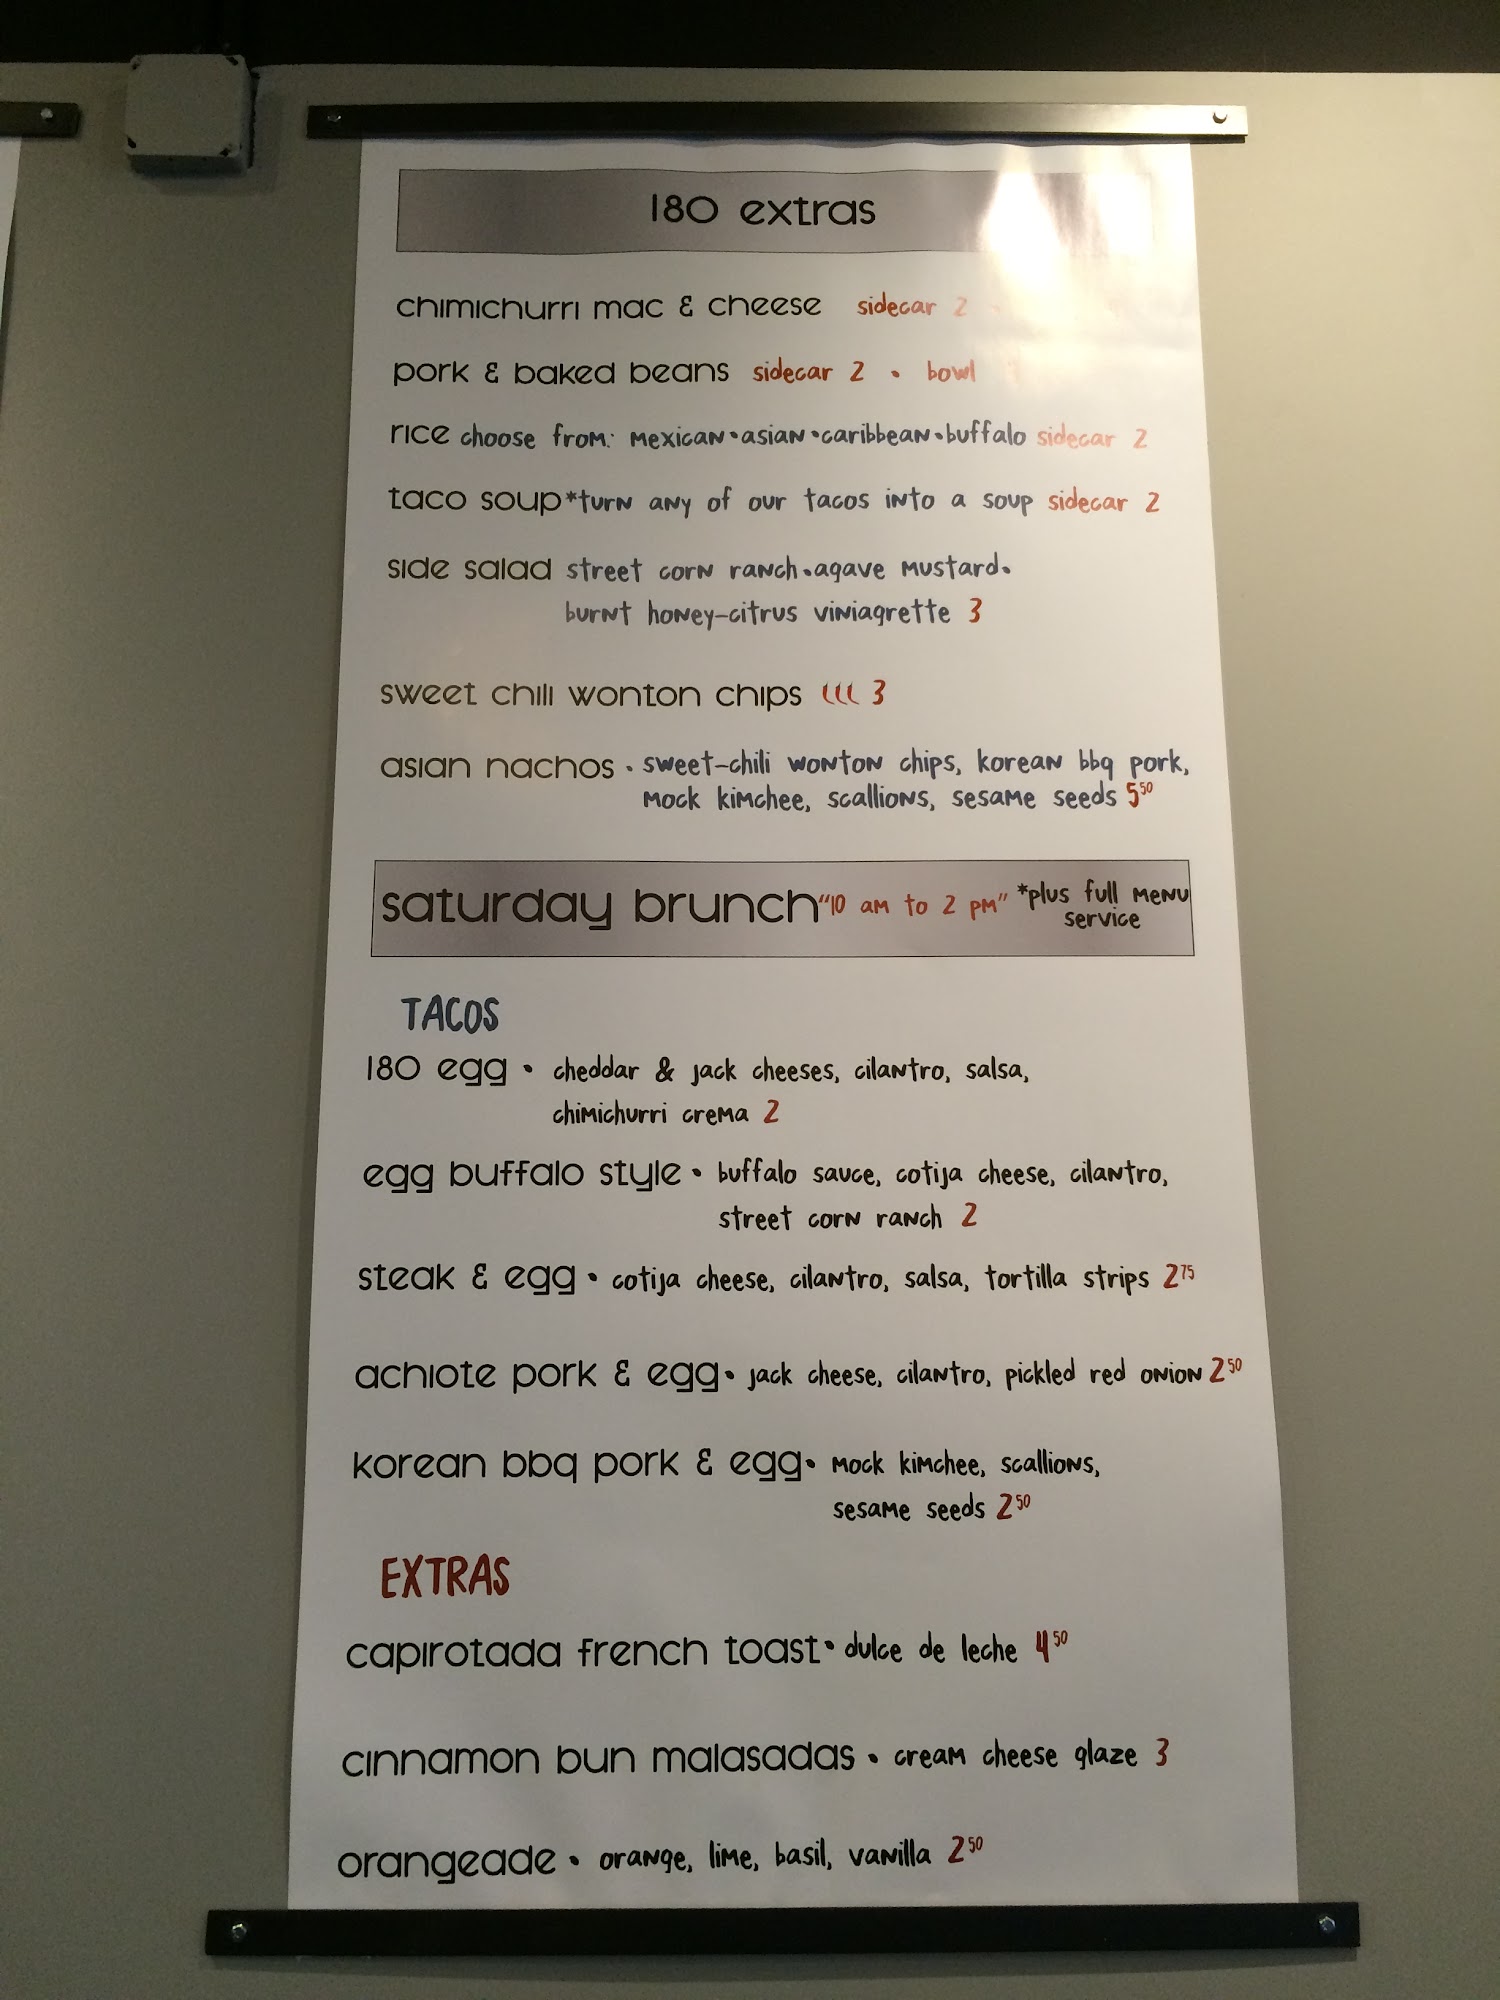 180 extras
chimichurri mac & cheese sidecar 2
pork & baked beans sidecar 2 • bowl
rice choose from: mexican•asian•caribbean•buffalo sidecar 2
taco soup*turn any of our tacos into a soup sidecar 2
side salad street corn ranch•agave mustard•
burnt honey-citrus viniagrette 3
sweet chili wonton chips 3
asian nachos • sweet-chili wonton chips, korean bbq pork,
mock kimchee, scallions, sesame seeds 5⁵⁰
saturday brunch "10 am to 2 pm" *plus full menu
service
TACOS
180 egg • cheddar & jack cheeses, cilantro, salsa,
chimichurri crema 2
egg buffalo style • buffalo sauce, cotija cheese, cilantro,
street corn ranch 2
steak & egg • cotija cheese, cilantro, salsa, tortilla strips 2⁷⁵
achiote pork & egg • jack cheese, cilantro, pickled red onion 2⁵⁰
korean bbq pork & egg • mock kimchee, scallions,
sesame seeds 2⁵⁰
EXTRAS
capirotada french toast • dulce de leche 4⁵⁰
cinnamon bun malasadas • cream cheese glaze 3
orangeade • orange, lime, basil, vanilla 2⁵⁰